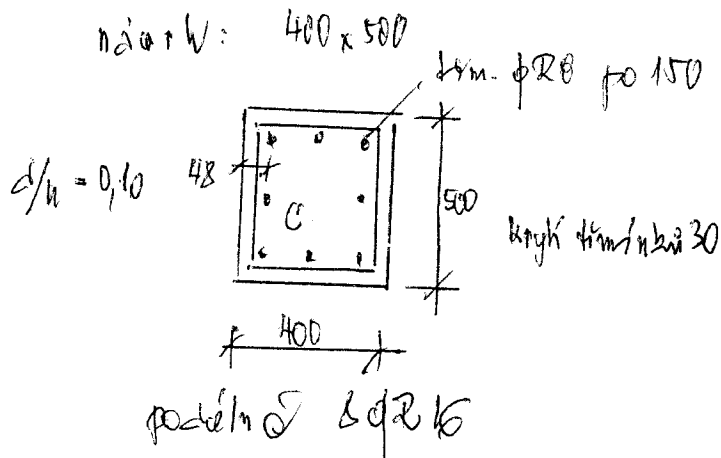 návrh: 400 x 500
třm. ϕR8 po 150
d/h = 0,10
48
500
C
krytí třmínků 30
400
podélná 8ϕR16